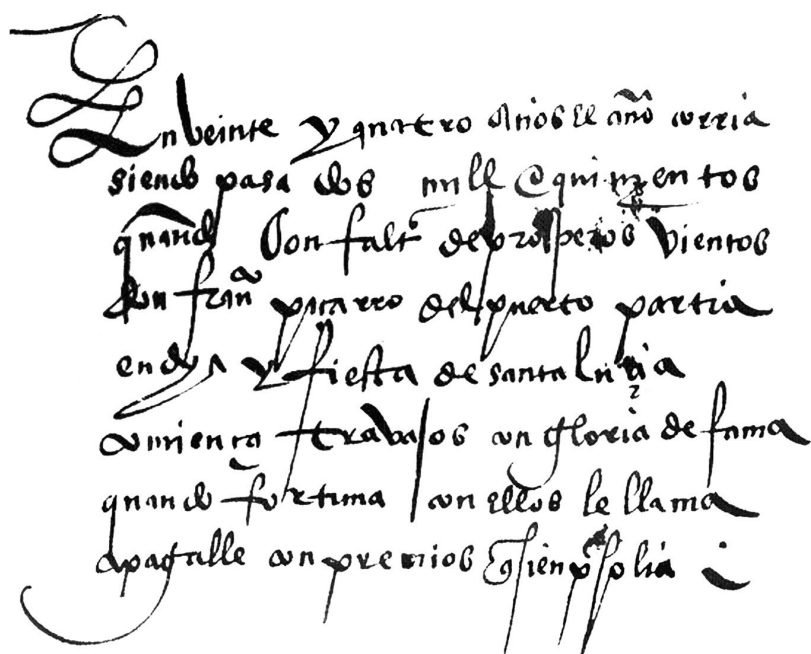 En veinte y quatro Años el año corria
siendo pasados mill e quinientos
quando con falta de prosperos vientos
don franco piçarro del puerto partia
en dya y fiesta de santa luzia
comiença trabajos con gloria de fama
quando fortuna con ellos le llama
a pagalle con premios q sienp solia